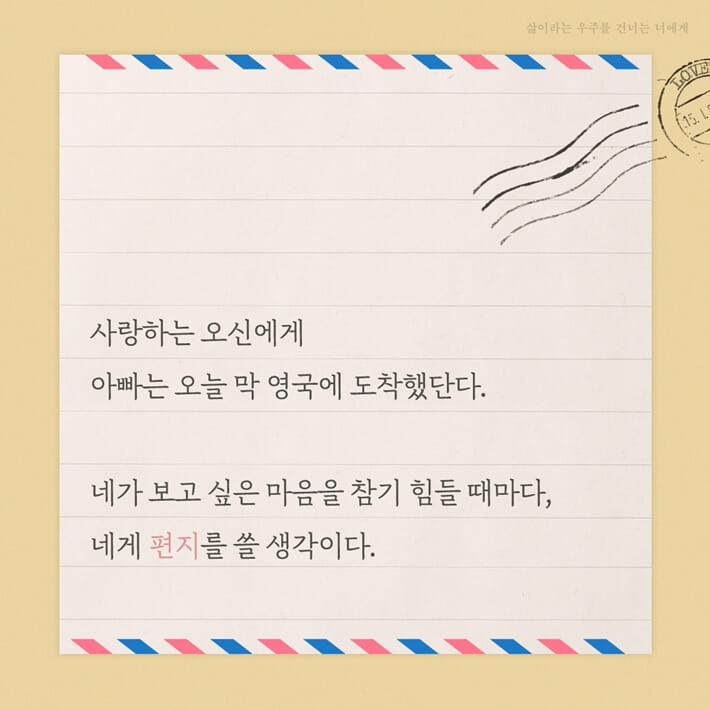 삶이라는 우주를 건너는 너에게
LOVE
사랑하는 오신에게
아빠는 오늘 막 영국에 도착했단다.
네가 보고 싶은 마음을 참기 힘들 때마다,
네게 편지를 쓸 생각이다.